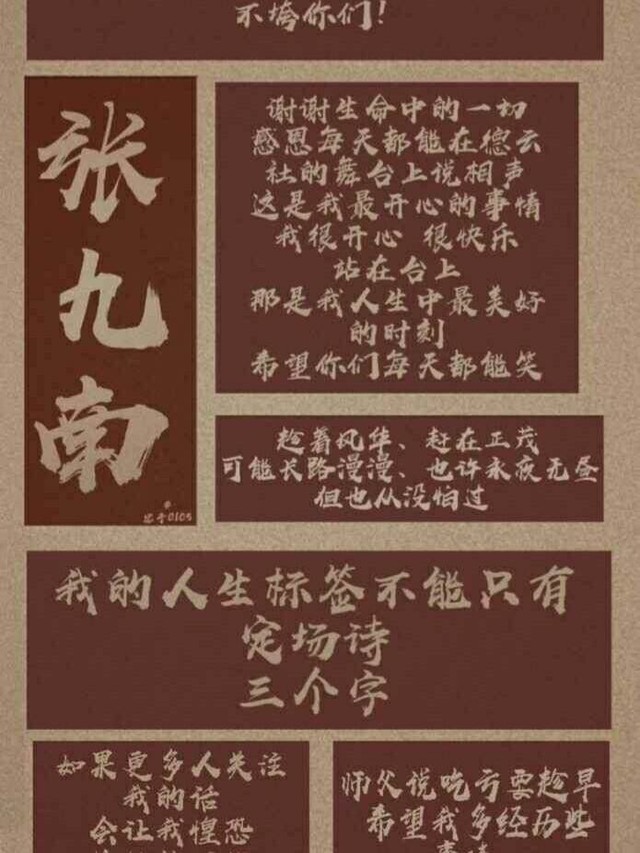 不垮你们!
张
九
南
谢谢生命中的一切
感恩每天都能在德云
社的舞台上说相声
这是我最开心的事情
我很开心 很快乐
站在台上
那是我人生中最美好
的时刻
希望你们每天都能笑
趁着风华、赶在正茂
可能长路漫漫、也许永夜无昼
但也从没怕过
我的人生标签不能只有
定场诗
三个字
如果更多人关注
我的话
会让我惶恐
师父说吃亏要趁早
希望我多经历些